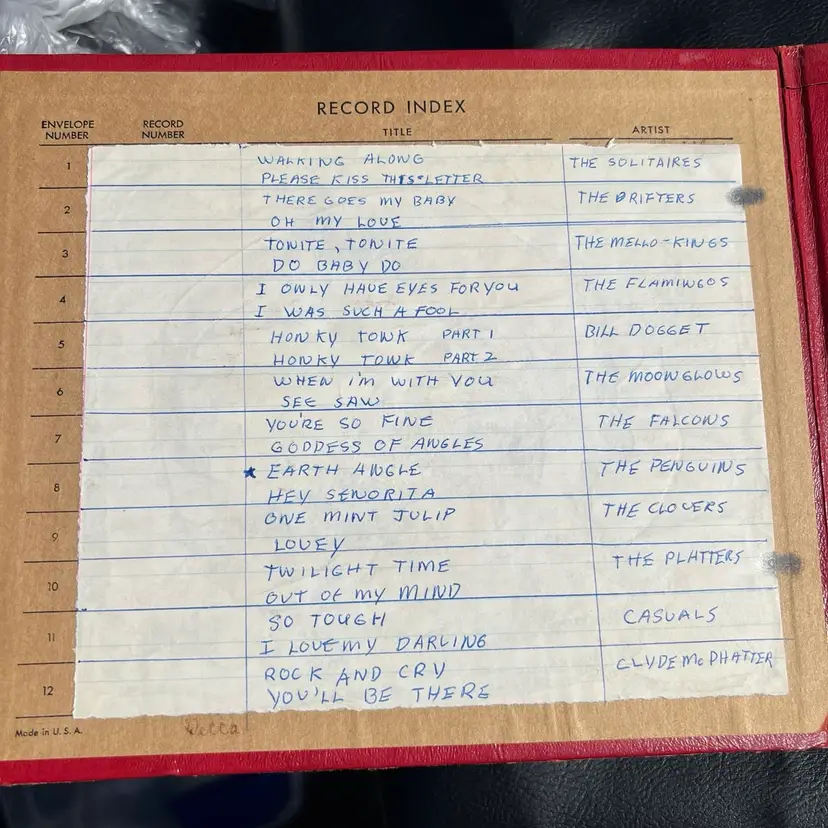 RECORD INDEX
ENVELOPE NUMBER RECORD NUMBER TITLE ARTIST
1 WALKING ALONG THE SOLITAIRES
PLEASE KISS THIS LETTER
2 THERE GOES MY BABY THE DRIFTERS
OH MY LOVE
3 TONITE, TONITE THE MELLO-KINGS
DO BABY DO
4 I ONLY HAVE EYES FOR YOU THE FLAMINGOS
I WAS SUCH A FOOL
5 HONKY TONK PART 1 BILL DOGGET
HONKY TONK PART 2
6 WHEN I'M WITH YOU THE MOONGLOWS
SEE SAW
7 YOU'RE SO FINE THE FALCONS
GODDESS OF ANGLES
8 ★ EARTH ANGLE THE PENGUINS
HEY SENORITA
9 ONE MINT JULIP THE CLOVERS
LOVEY
10 TWILIGHT TIME THE PLATTERS
OUT OF MY MIND
11 SO TOUGH CASUALS
I LOVE MY DARLING
12 ROCK AND CRY CLYDE McPHATTER
YOU'LL BE THERE
Made in U. S. A.
Decca